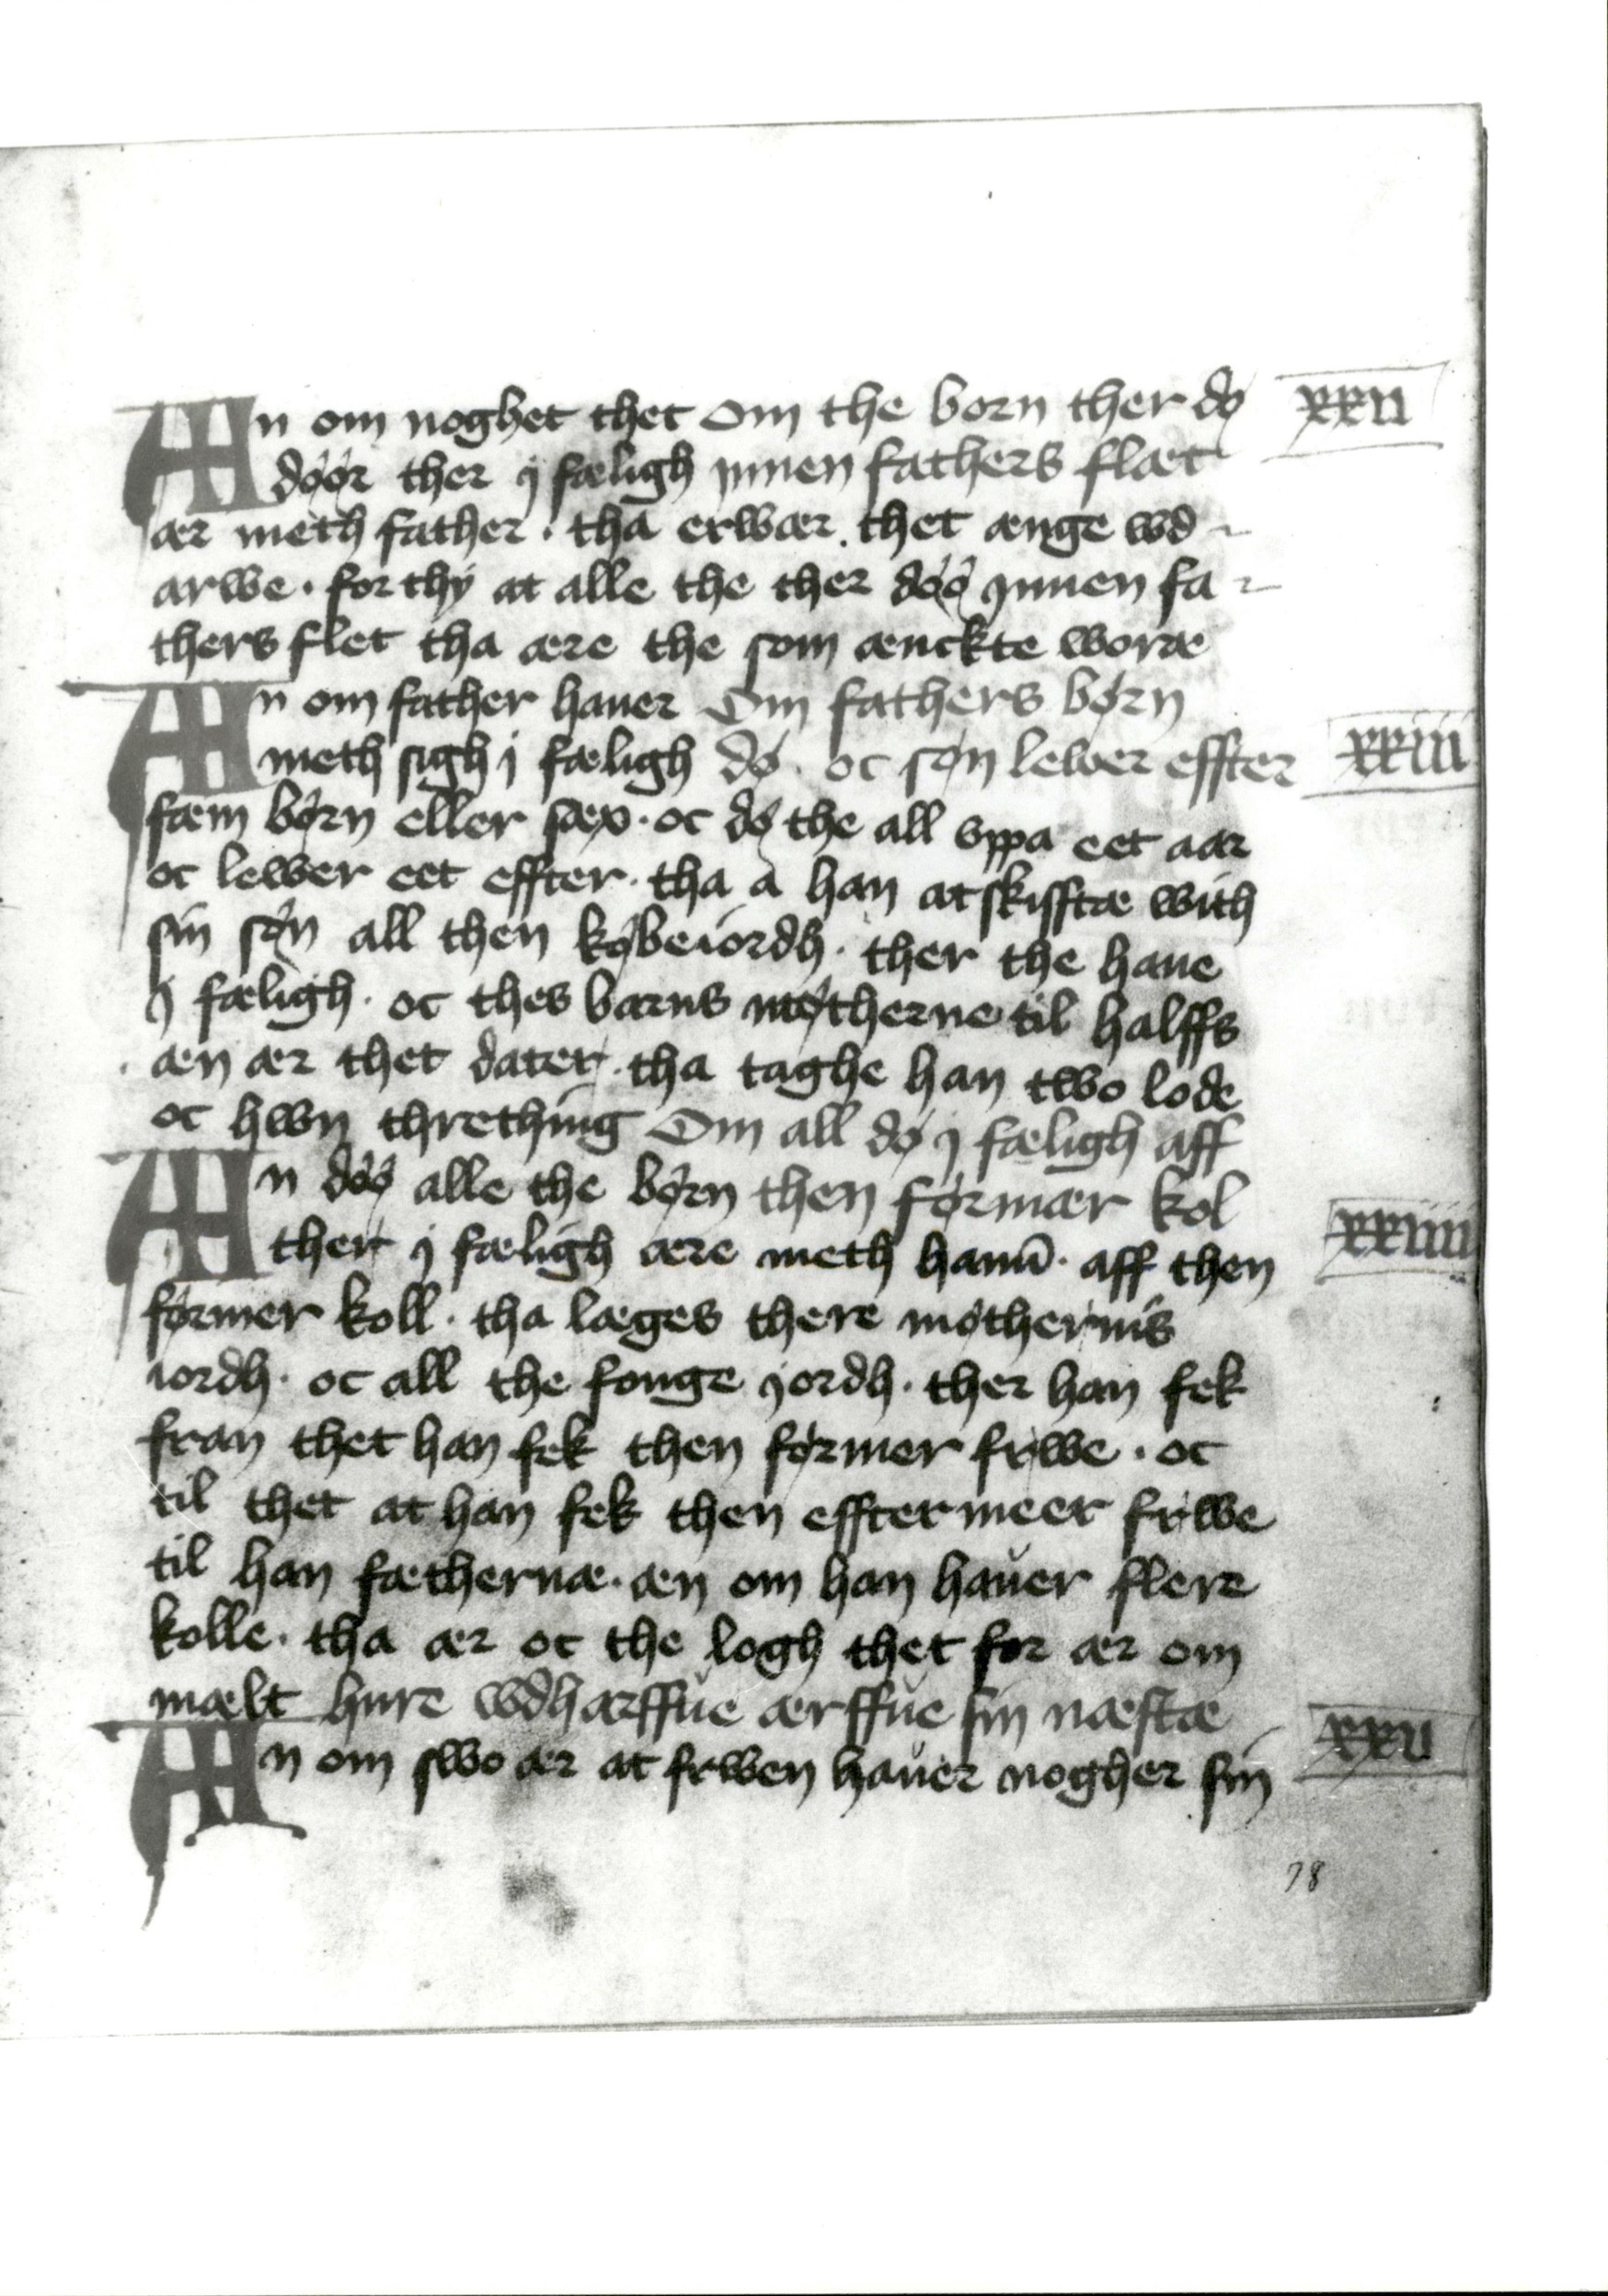 Æn om noghet thet Om the børn ther dø xxii
døør ther j fæligh jnnen fathers flæt
ær meth father · tha erwær thet ænge wd
arwe · for thy at alle the ther døø jnnen fa
thers flet tha ære the som ænckte woræ
Æn om father hauer Om fathers børn
meth sigh j fæligh dø · oc søn lewer effter xxiii
fæm børn eller sæx · oc dø the all vppa eet aar
oc lewer eet effter · tha a han at skifftæ with
sin søn all then købeiordh · ther the haue
j fæligh · oc thes barns møtherne til halffs
æn ær thet dater · tha taghe han two lode
oc hwn thrething Om all dø j fæligh aff
Æn døø alle the børn then førmær kol
ther j fæligh ære meth hanū · aff then xxiiii
førmer koll · tha læges there møthernis
iordh · oc all the fonge jordh · ther han fek
fran thet han fek then førmer frwe · oc
til thet at han fek then efftermeer frwe
til han fæthernæ · æn om han hauer flere
kolle · tha ær oc the logh thet for ær om
mælt hure wdharffue ærffue sin næstæ
Æn om swo ær at frwen hauer nogher sin xxv
78